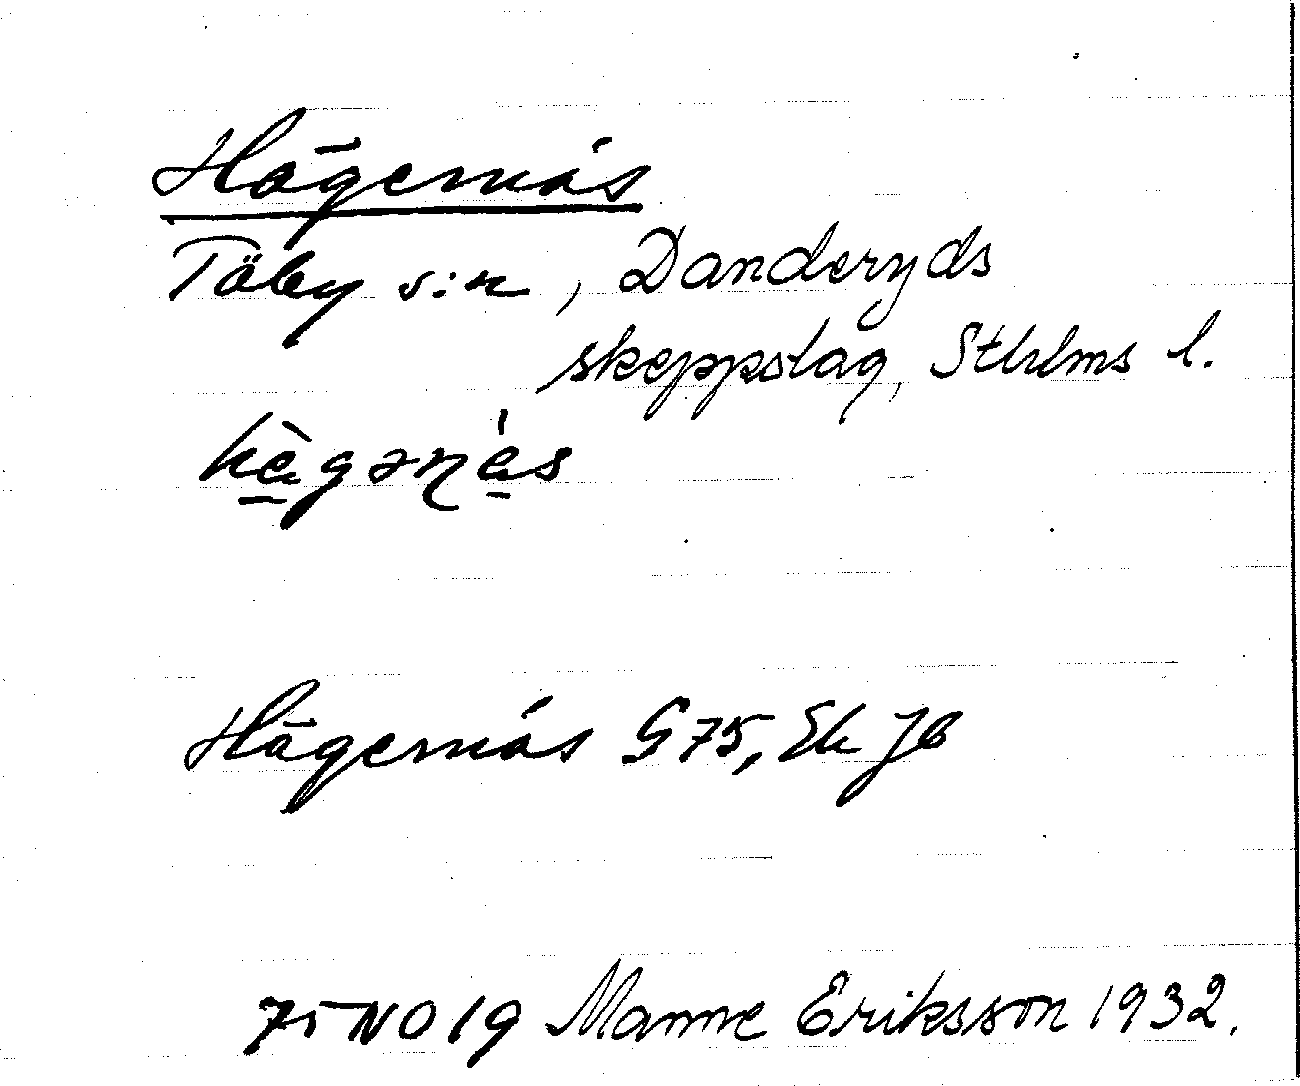 Hägernäs
Täby s:n, Danderyds
skeppslag, Sthlms l.
hägənäs
Hägernäs G 75, Ek JB
75 NO 19 Manne Eriksson 1932.